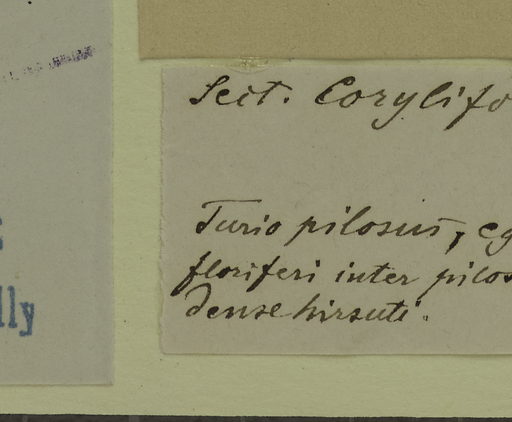 Sect. Corylifo
Turio pilosus, eg
floriferi inter pilos
dense hirsuti.
lly